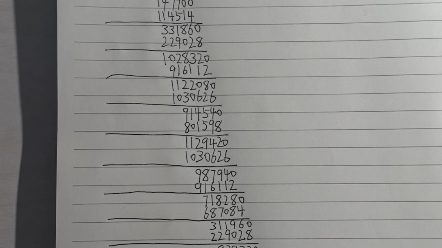 114514
331860
229028
1028320
916112
1122080
1030626
914540
801598
1129420
1030626
987940
916112
718280
687084
311960
229028